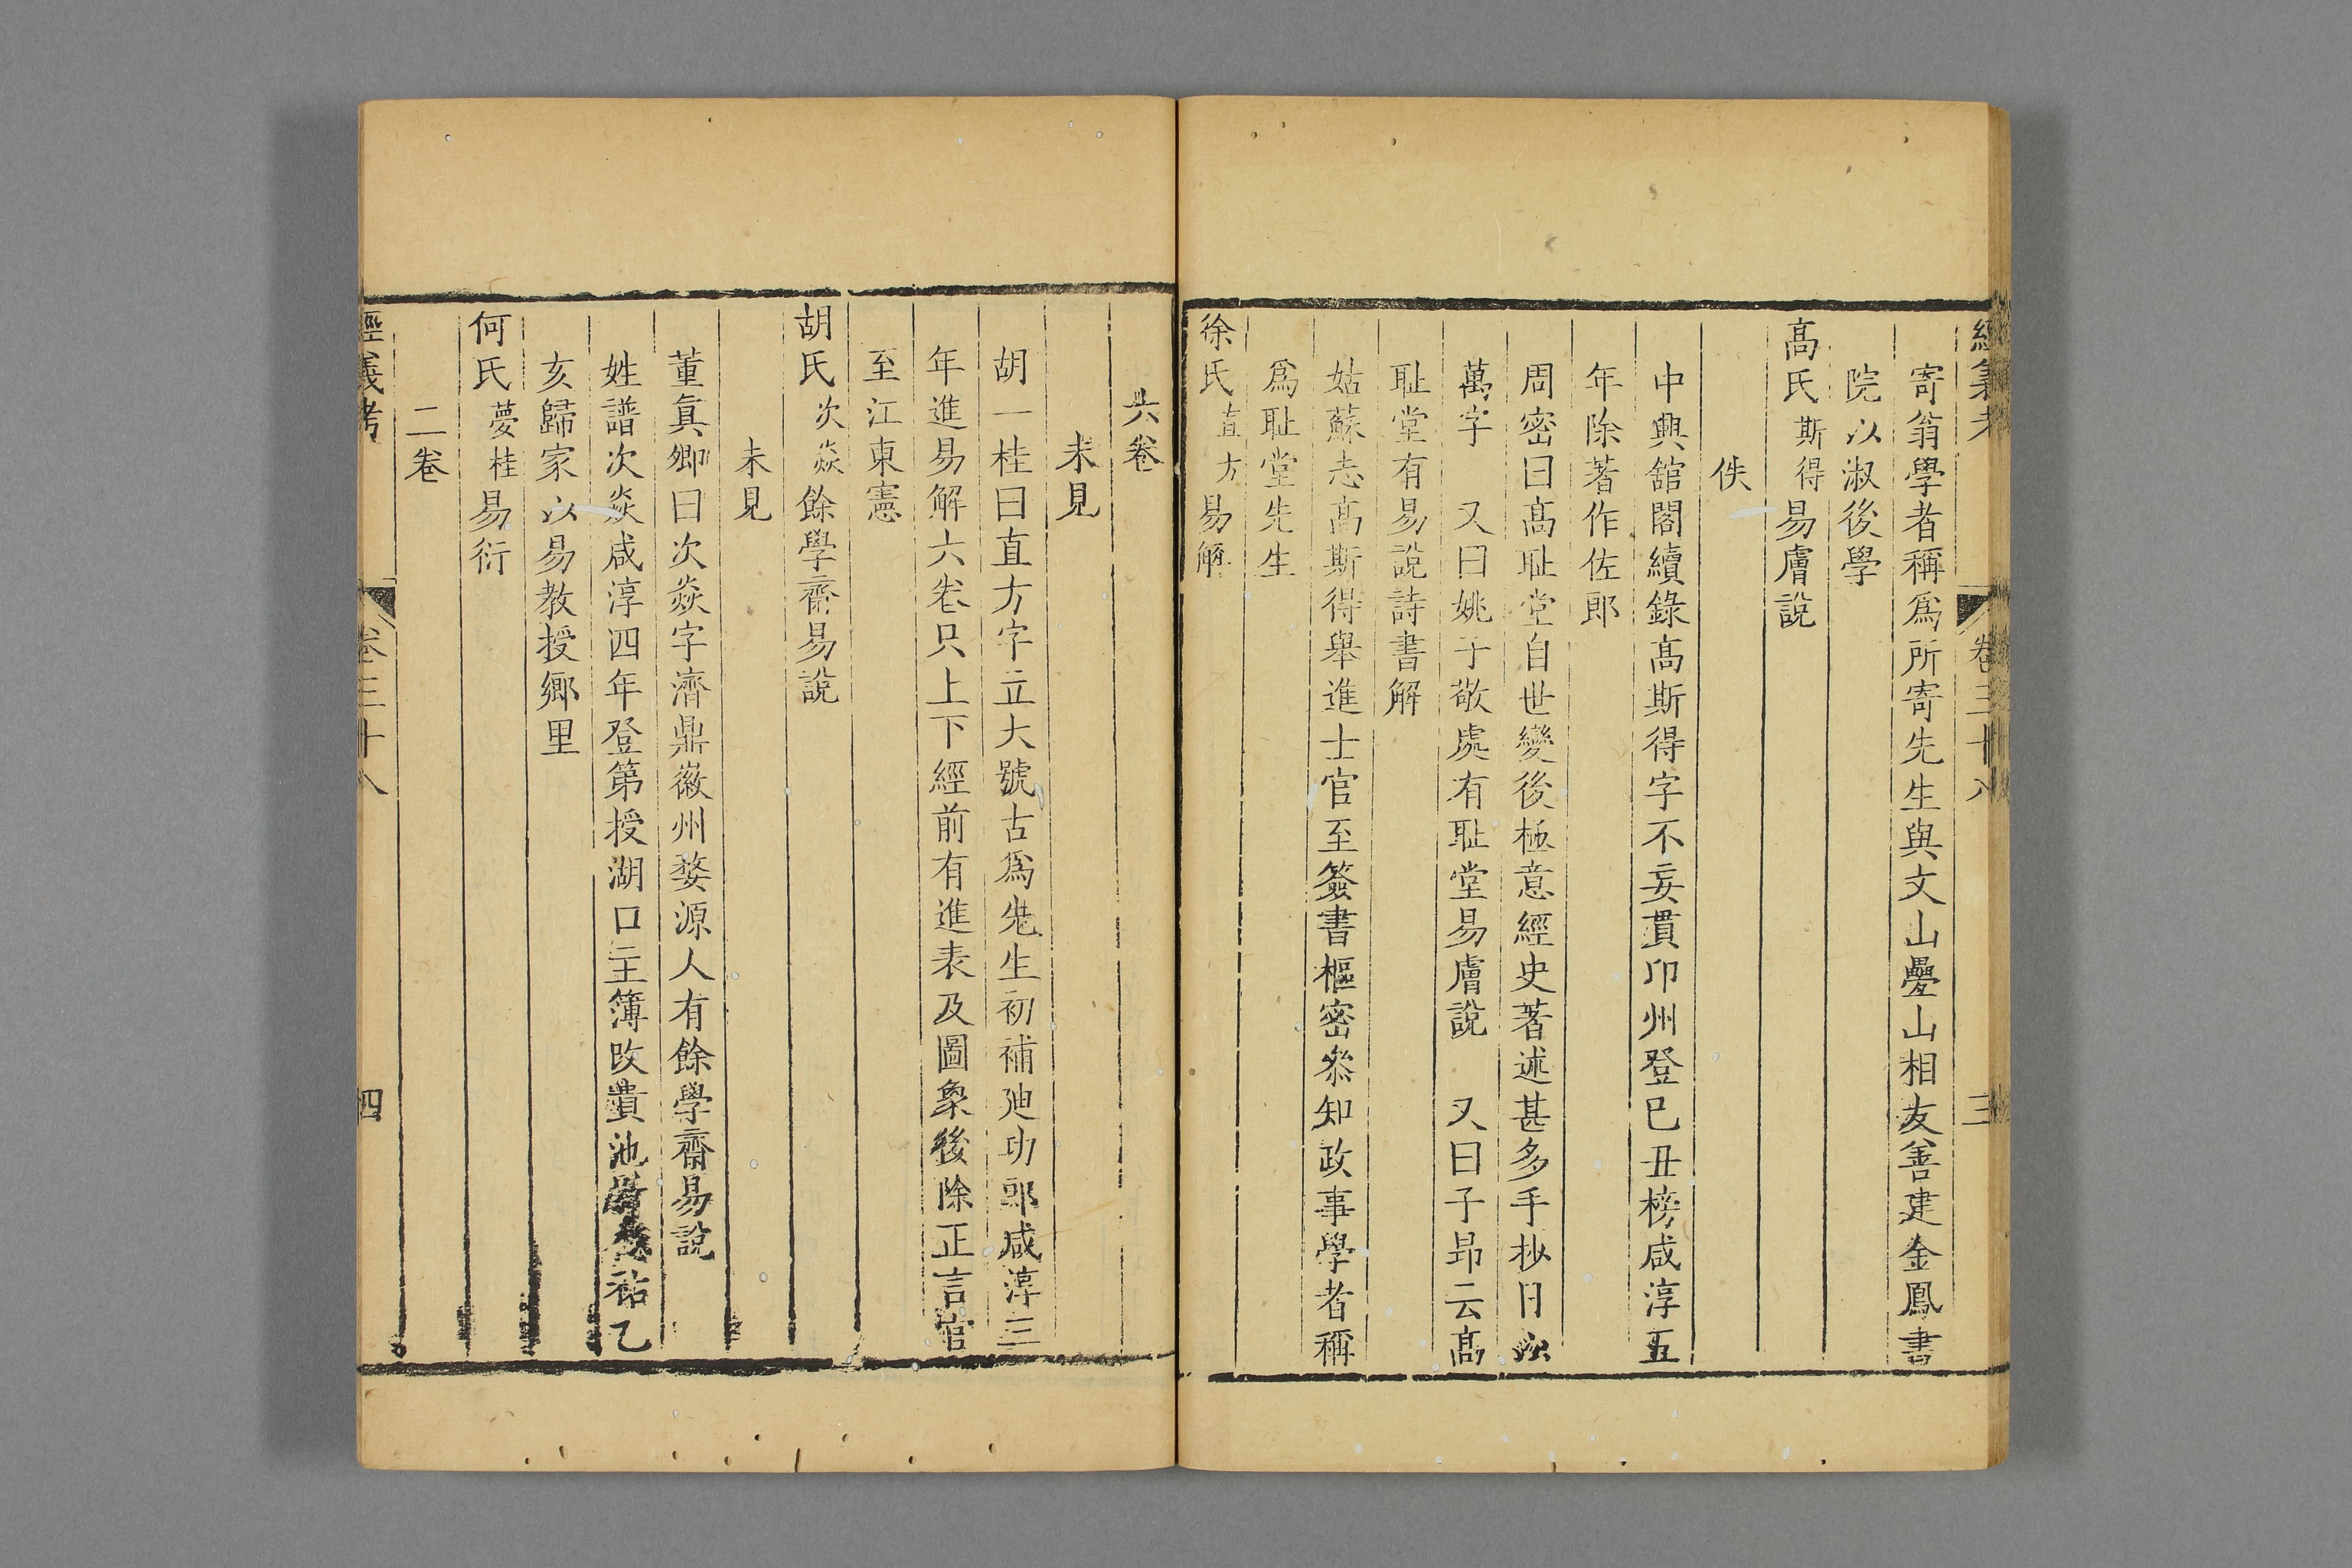 卷三十八
三
寄翁學者稱爲所寄先生與文山疊山相友善建金鳳書
院以淑後學
高氏斯得易膚說
佚
中興舘閣續錄高斯得字不妄貫卬州登已丑榜咸淳五
年除著作佐郎
周密曰高耻堂自世變後極意經史著述甚多手抄日
萬字　又曰姚子敬處有耻堂易膚說　又曰子昻云高
耻堂有易說詩書解
姑蘇志高斯得舉進士官至簽書樞密叅知政事學者稱
爲耻堂先生
徐氏直方易解
六卷
未見
胡一桂曰直方字立大號古爲先生初補廸功郎咸淳三
年進易解六卷只上下經前有進表及圖象後除正言官
至江東憲
胡氏次焱餘學齋易說
未見
董眞卿曰次焱字濟鼎徽州婺源人有餘學齋易說
姓譜次焱咸淳四年登第授湖口主簿改貴池祐乙
亥歸家以易教授鄉里
何氏夢桂易衍
二卷
經義考
卷三十八
四